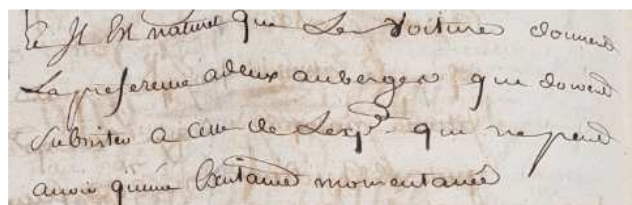 Et Il Est naturel que Les Voitures donnent
La preference a deux auberges que doivent
subsister a celle de L'exp.t qui ne peut
avoir qu'une Existance momentanée